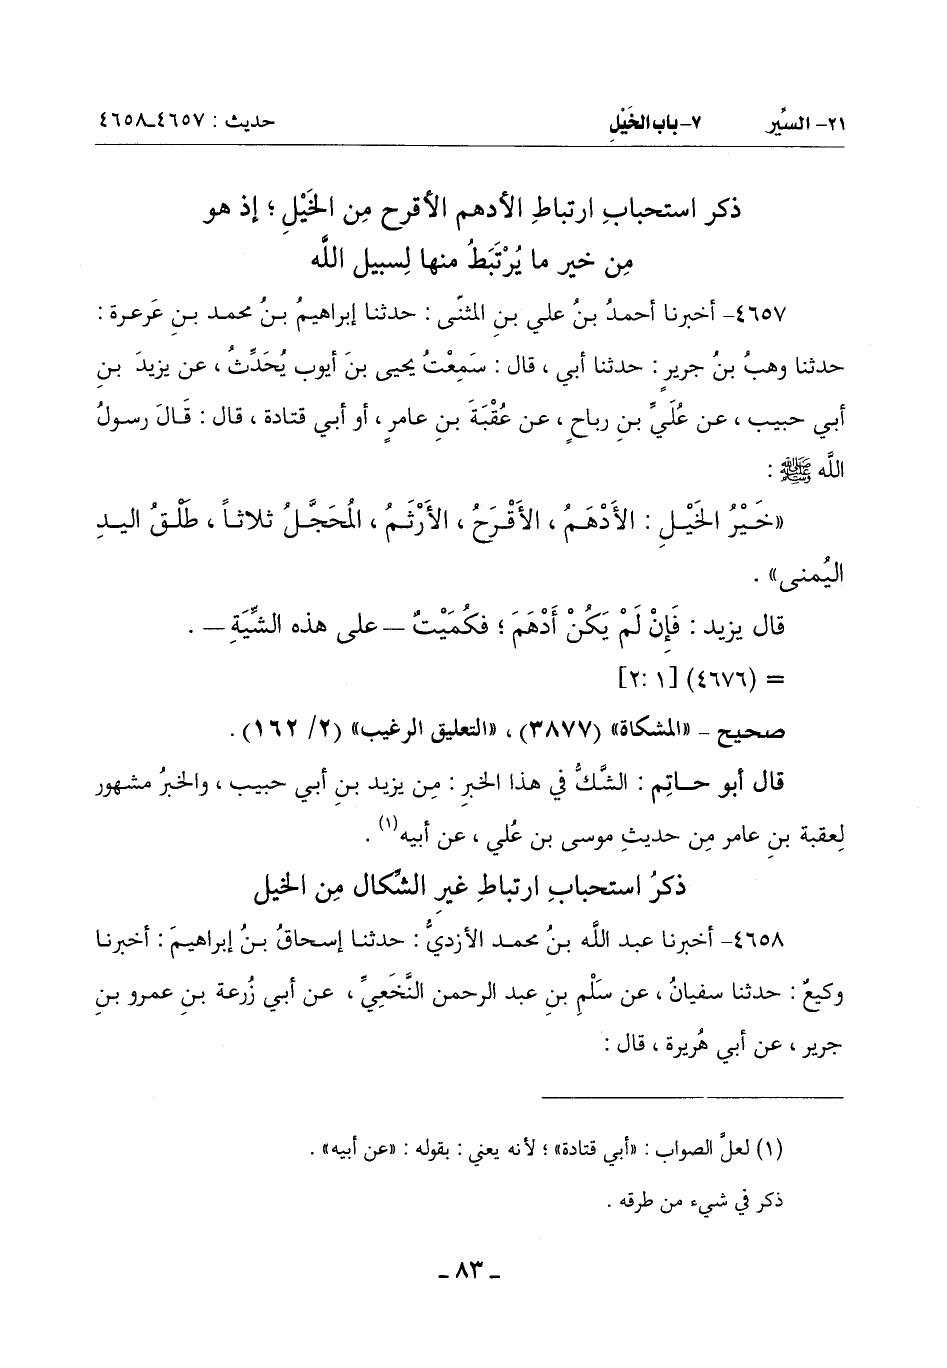 ٢١- السِّير ٧- باب الخَيْلِ حديث : ٤٦٥٧ـ٤٦٥٨
ذكر استحبابِ ارتباطِ الأدهم الأقرح مِن الخَيْلِ ؛ إذ هو
مِن خير ما يُرْتَبَطُ منها لِسبيل اللَّه
٤٦٥٧- أخبرنا أحمدُ بنُ علي بنِ المثنّى : حدثنا إبراهيمُ بنُ محمد بنِ عَرعرة :
حدثنا وهبُ بنُ جريرٍ : حدثنا أبي ، قال : سَمِعْتُ يحيى بنَ أيوب يُحَدِّثُ ، عن يزيدَ بنِ
أبي حبيب ، عن عُلَيِّ بنِ رباحٍ ، عن عُقْبَةَ بنِ عامرٍ ، أو أبي قتادة ، قال : قَالَ رسولُ
اللَّه ﷺ :
«خَيْرُ الخَيْلِ : الأَدْهَمُ ، الأَقْرَحُ ، الأَرْثَمُ ، المُحَجَّلُ ثلاثاً ، طَلْقُ اليدِ
اليُمنى» .
قال يزيد : فَإِنْ لَمْ يَكُنْ أَدْهَمَ ؛ فكُمَيْتٌ ــ على هذه الشِّيَةِ ــ .
= (٤٦٧٦) [٢: ١]
صحيح - «المشكاة» (٣٨٧٧) ، «التعليق الرغيب» (٢/ ١٦٢) .
قال أبو حاتِم : الشَّكُّ في هذا الخبرِ : مِن يزيد بنِ أبي حبيب ، والخبرُ مشهور
لِعقبة بنِ عامر مِن حديثِ موسى بن عُلي ، عن أبيه(١) .
ذكرُ استحبابِ ارتباطِ غيرِ الشِّكال مِن الخيل
٤٦٥٨- أخبرنا عبد اللَّه بنُ محمد الأزديُّ : حدثنا إسحاقُ بنُ إبراهيمَ : أخبرنا
وكيعٌ : حدثنا سفيانُ ، عن سَلْمِ بنِ عبد الرحمن النَّخَعِيِّ ، عن أبي زُرعة بنِ عمرو بنِ
جرير ، عن أبي هُريرة ، قال :
(١) لعلَّ الصواب : «أبي قتادة» ؛ لأنه يعني : بقوله : «عن أبيه» .
ذكر في شيء من طرقه .
ـ ٨٣ ـ